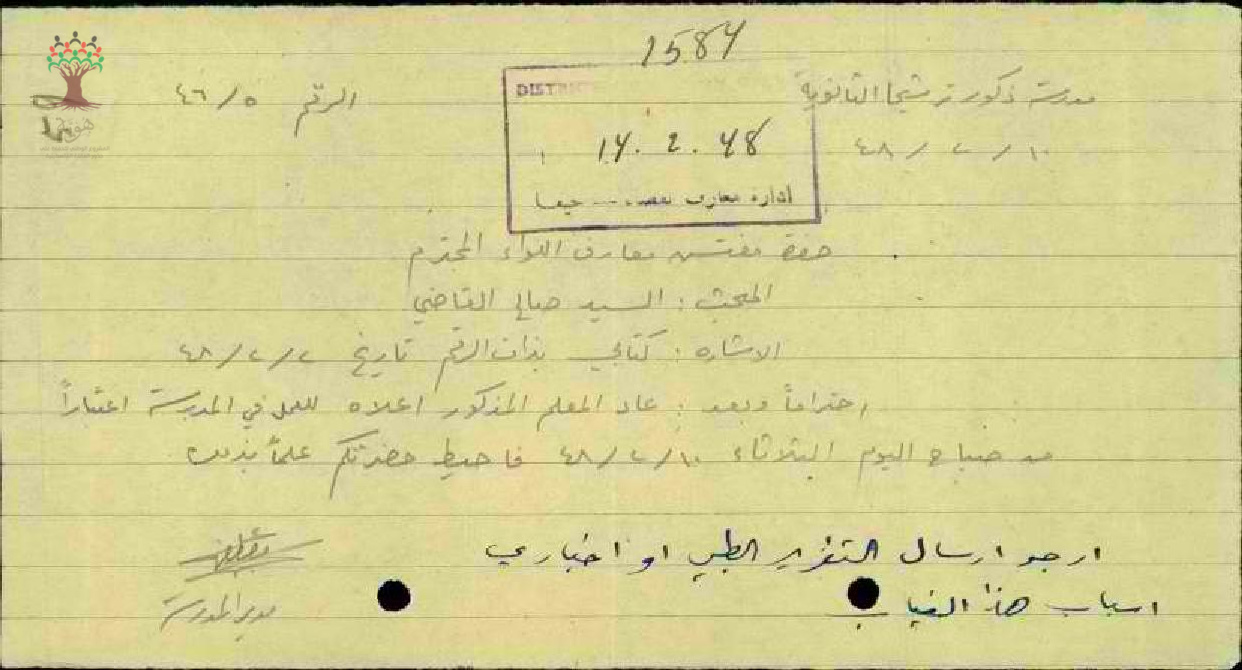 1584
مدرسة ذكور ترشيحا الثانوية
الرقم ٤٦/٥
DISTRICT
١٠/٢/٤٨
14. 2. 48
ادارة معارف حيفا
حضرة مفتش معارف اللواء المحترم
المبحث : السيد صالح القاضي
الاشارة : كتابي بذات الرقم تاريخ ٤٨/٢/٢
احتراماً وبعد : عاد المعلم المذكور اعلاه للعمل في المدرسة اعتباراً
من صباح اليوم الثلاثاء ٤٨/٢/١٠ فاحيط حضرتكم علماً بذلك
ارجو ارسال التقرير الطبي او اخباري
اسباب هذا الغياب
مدير المدرسة
هوية